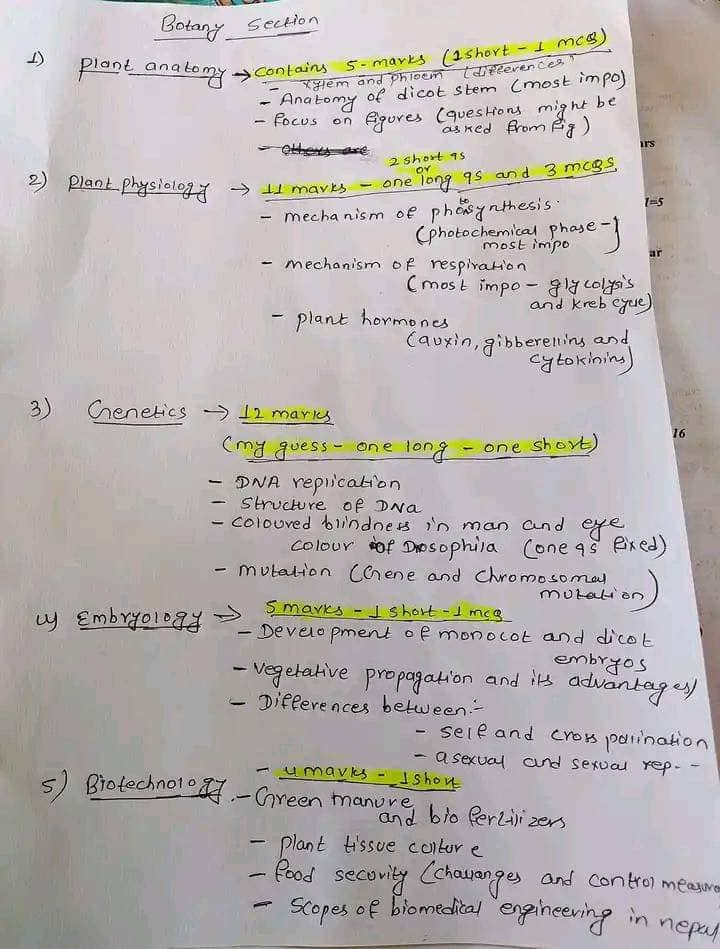 Botany Section
1) Plant anatomy → contains 5-marks (1short - 1 mcq)
- Xylem and Phloem (differences)
- Anatomy of dicot stem (most impo)
- focus on figures (questions might be
asked from fig)
- others are
2 short qs
or
2) Plant physiology → 11 marks - one long qs and 3 mcqs
- mechanism of photosynthesis.
(photochemical phase -
most impo
- mechanism of respiration
(most impo - glycolysis
and kreb cycle)
- plant hormones
(auxin, gibberellins and
cytokinins)
3) Genetics → 12 marks
(my guess - one long - one short)
- DNA replication
- structure of DNA
- coloured blindness in man and eye
colour of Drosophila (one qs fixed)
- mutation (Gene and chromosomal
mutation)
4) Embryology → 5 marks - 1 short - 1 mcq
- Development of monocot and dicot
embryos
- vegetative propagation and its advantages)
- Differences between:-
- self and cross pollination
- asexual and sexual rep. -
5) Biotechnology - 4 marks - 1 short
- Green manure
and bio fertilizers
- plant tissue culture
- food security (challanges and control measure
- scopes of biomedical engineering in nepal
rs
1=5
ar
16